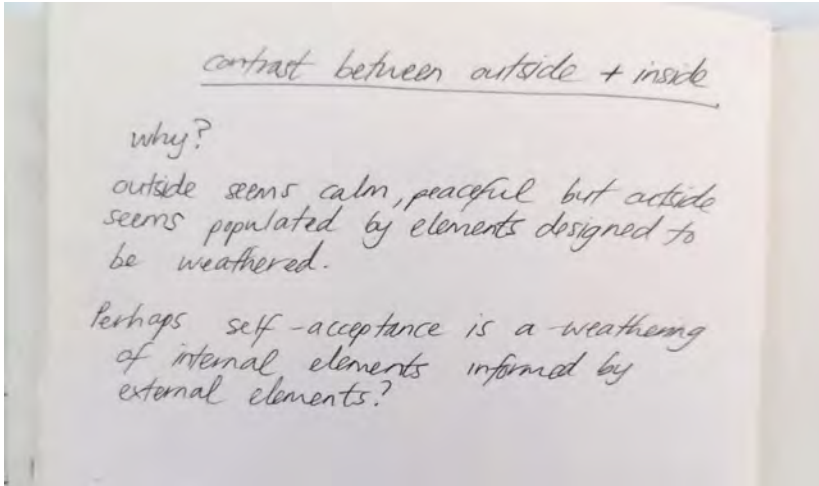 contrast between outside + inside
why?
outside seems calm, peaceful but outside
seems populated by elements designed to
be weathered.
Perhaps self-acceptance is a weathering
of internal elements informed by
external elements?